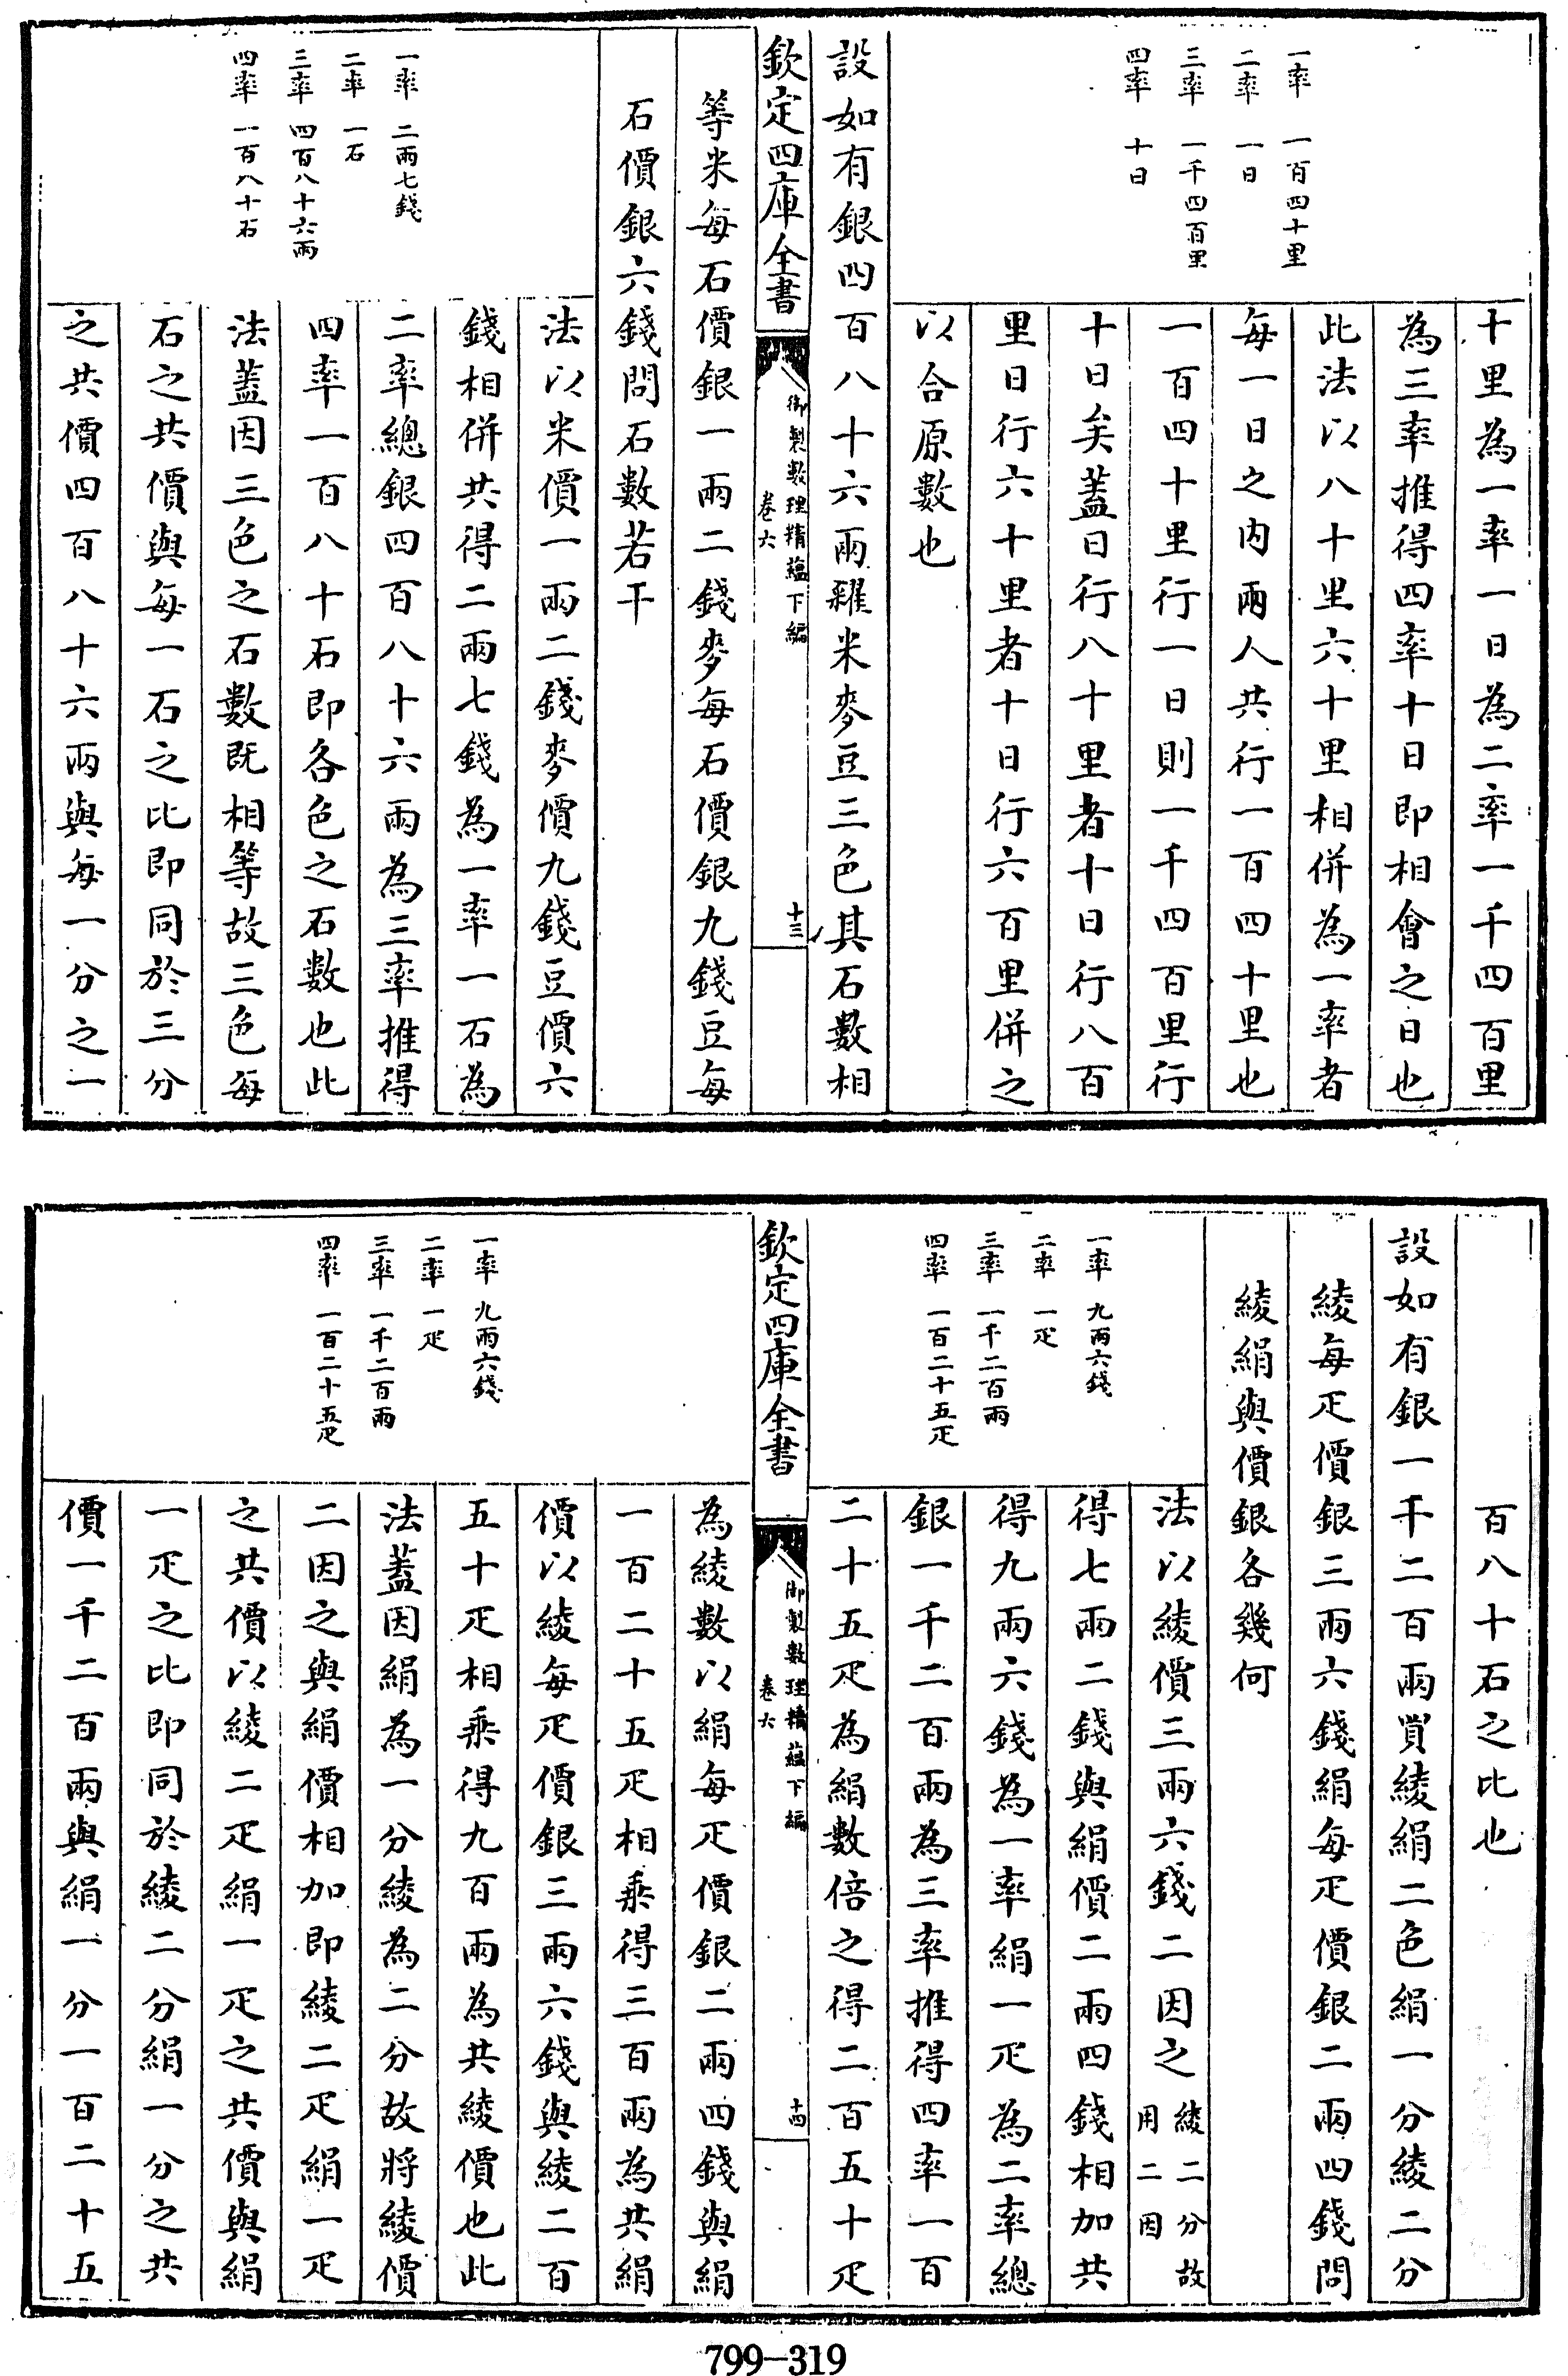 一率　一百四十里
二率　一日
三率　一千四百里
四率　十日
十里為一率一日為二率一千四百里
為三率推得四率十日即相會之日也
此法以八十里六十里相併為一率者
每一日之内兩人共行一百四十里也
一百四十里行一日則一千四百里行
十日矣蓋日行八十里者十日行八百
里日行六十里者十日行六百里併之
以合原數也
設如有銀四百八十六兩糴米麥豆三色其石數相
欽定四庫全書
御製數理精蘊下編
卷六
十三
等米每石價銀一兩二錢麥每石價銀九錢豆每
石價銀六錢問石數若干
一率　二兩七錢
二率　一石
三率　四百八十六兩
四率　一百八十石
法以米價一兩二錢麥價九錢豆價六
錢相併共得二兩七錢為一率一石為
二率總銀四百八十六兩為三率推得
四率一百八十石即各色之石數也此
法蓋因三色之石數既相等故三色每
石之共價與每一石之比即同於三分
之共價四百八十六兩與每一分之一
百八十石之比也
設如有銀一千二百兩買綾絹二色絹一分綾二分
綾每疋價銀三兩六錢絹每疋價銀二兩四錢問
綾絹與價銀各幾何
一率　九兩六錢
二率　一疋
三率　一千二百兩
四率　一百二十五疋
法以綾價三兩六錢二因之綾二分故用二因
得七兩二錢與絹價二兩四錢相加共
得九兩六錢為一率絹一疋為二率總
銀一千二百兩為三率推得四率一百
二十五疋為絹數倍之得二百五十疋
欽定四庫全書
御製數理精蘊下編
卷六
十四
為綾數以絹每疋價銀二兩四錢與絹
一百二十五疋相乘得三百兩為共絹
價以綾每疋價銀三兩六錢與綾二百
五十疋相乘得九百兩為共綾價也此
一率　九兩六錢
二率　一疋
三率　一千二百兩
四率　一百二十五疋
法蓋因絹為一分綾為二分故將綾價
二因之與絹價相加即綾二疋絹一疋
之共價以綾二疋絹一疋之共價與絹
一疋之比即同於綾二分絹一分之共
價一千二百兩與絹一分一百二十五
799-319